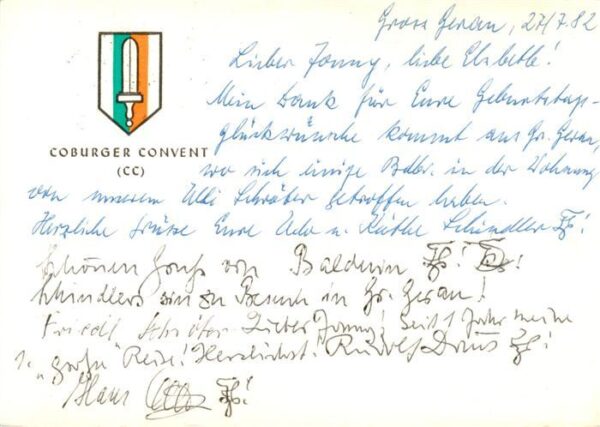 Gross Gerau, 27/7.82
Lieber Jonny, liebe Elsbeth!
Mein Dank für Eure Geburtstags-
glückwünsche kommt aus Gr. Gerau,
COBURGER CONVENT
(CC)
wo sich einige Bdbr. in der Wohnung
von unserem Ulli Schröter getroffen haben.
Herzliche Grüsse Eure Udo u. Käthe Schindler
Schönen Gruß von Balduin
Schindlers sind zu Besuch in Gr. Gerau!
Friedl Schröter Lieber Jonny! Seit 1 Jahr meine
1. "große" Reise! Herzlichst! Rudolf
Hans